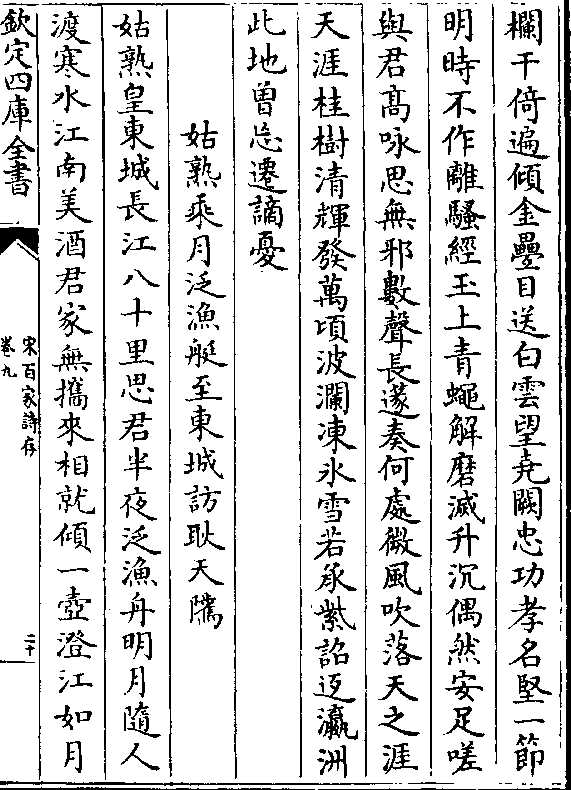 欄干倚遍傾金疊目送白雲望堯闕忠功孝名堅一節
明時不作離騷經玉上青蠅解磨滅升沉偶然安足嗟
與君髙咏思無邪數聲長篴奏何處微風吹落天之涯
天涯桂樹清輝發萬頃波瀾凍氷雪若承紫詔迓瀛洲
此地曽忘遷謫憂
姑熟乘月泛漁艇至東城訪耿天隲
姑熟皇東城長江八十里思君半夜泛漁舟明月隨人
渡寒水江南美酒君家無攜來相就傾一壺澄江如月
欽定四庫全書
宋百家詩存
卷九
二十